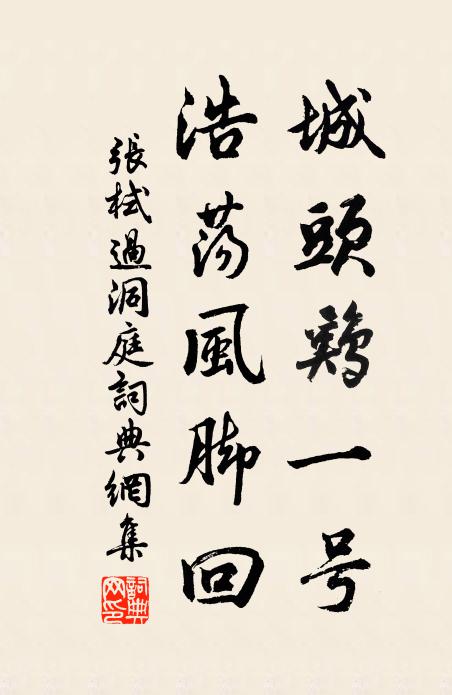 城頭鷄一号
浩蕩風脚回
張栻過洞庭詞典網集
詞典网印